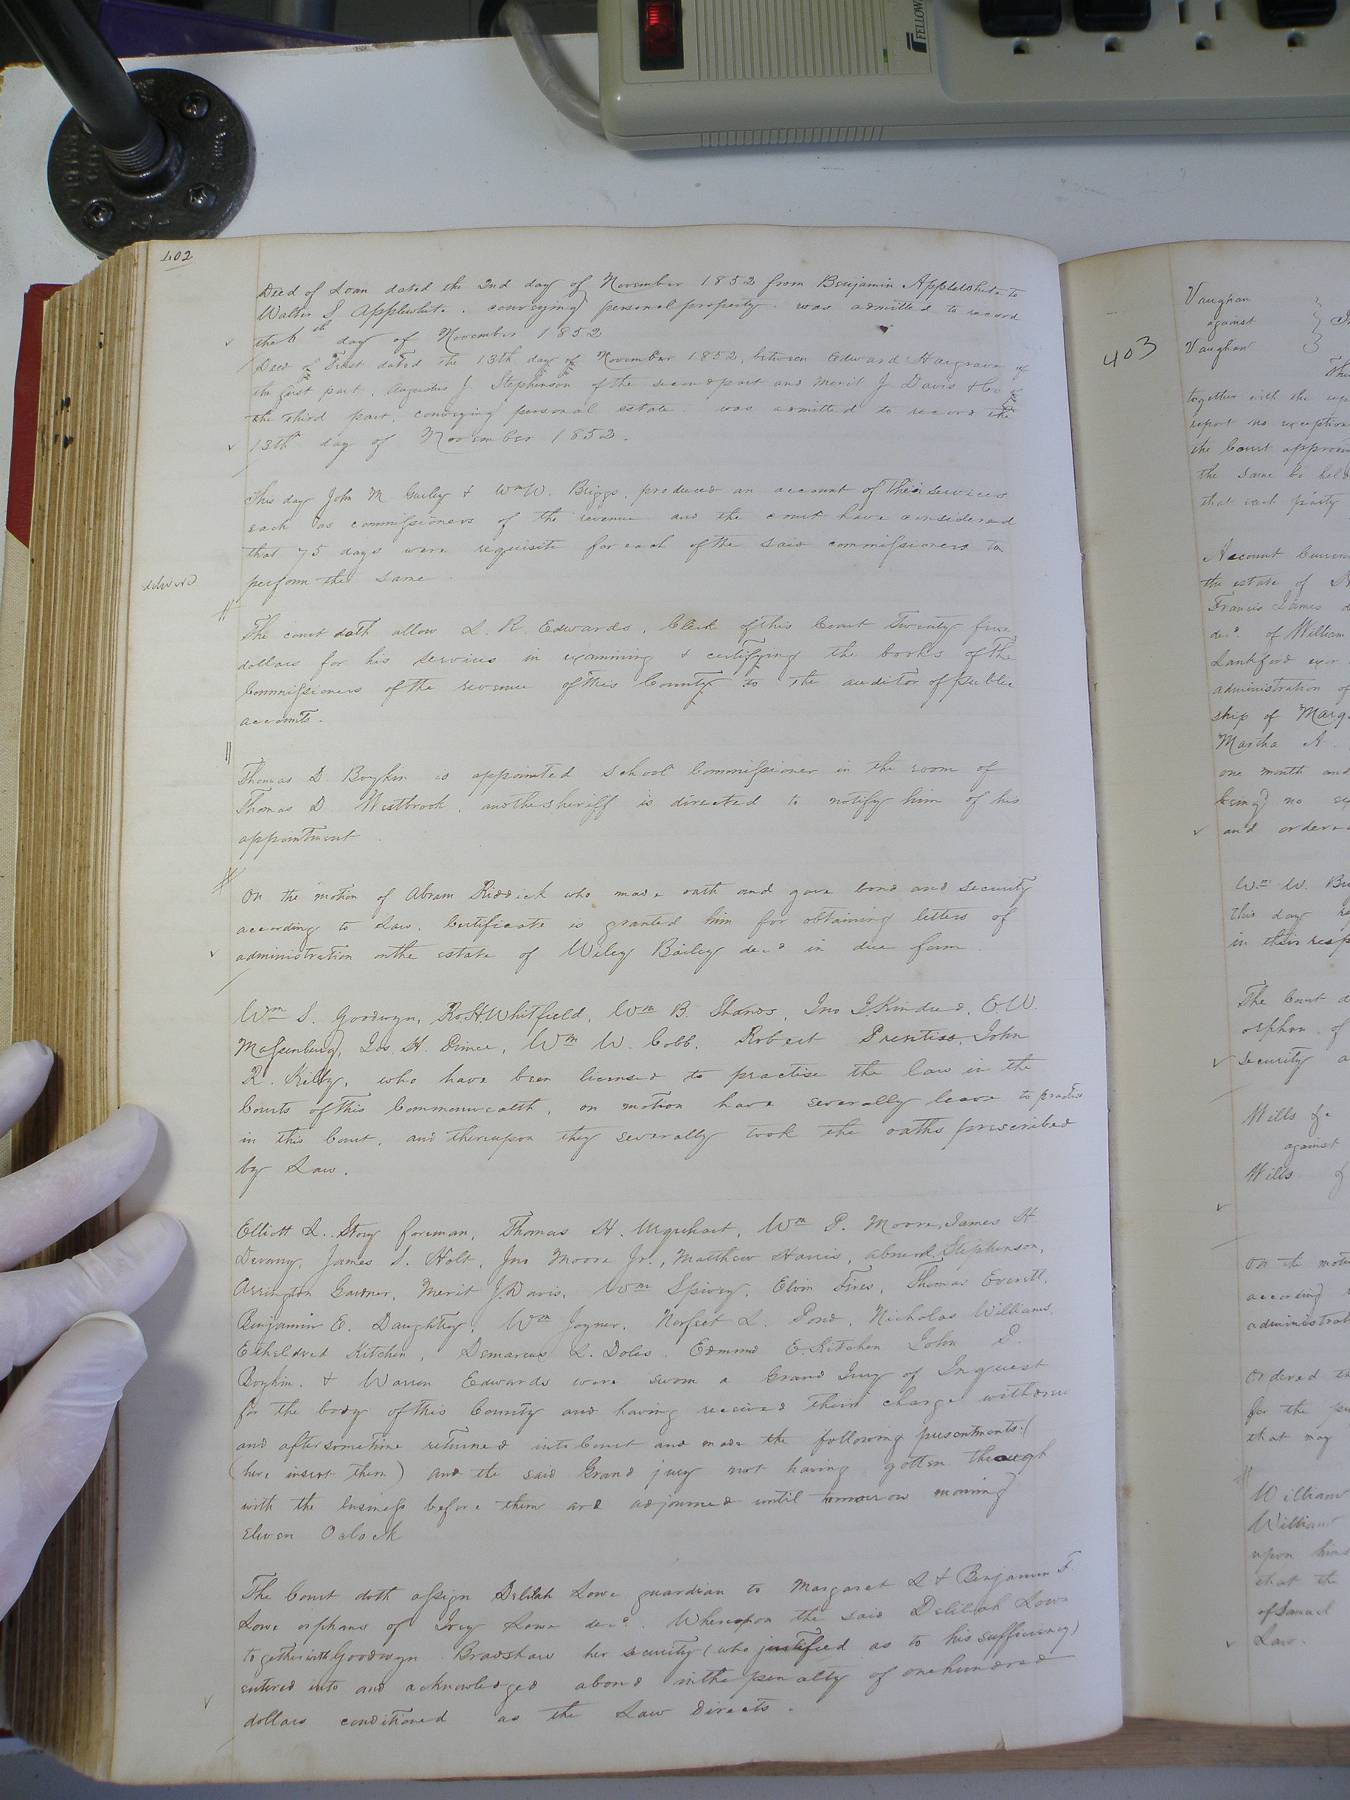 FELLOW
402
Deed of Loan dated the 2nd day of November 1852 from Benjamin Applewhite to
Walter S Applewhite. conveying personal property was admitted to record
the 6th day of November 1852
Deed of Trust dated the 13th day of November 1852, between Edward Hargrave of
the first part, Augustus J. Stephenson of the second part and Merit J Davis & Co of
the third part, conveying personal estate was admitted to record the
13th day of November 1852.
This day John M Gurley & Wm W. Briggs, produced an account of their services
each as commissioners of the revenue and the court have considered
that 75 days were requisite for each of the said commissioners to
perform the same
edwards
The court doth allow L. R. Edwards, Clerk of this Court Twenty five
dollars for his services in examining & certifying the books of the
Commissioners of the revenue of this County to the auditor of public
accounts.
Thomas D Boykin is appointed School Commissioner in the room of
Thomas D. Westbrook. and the sheriff is directed to notify him of his
appointment
On the motion of Abram Riddick who made oath and gave bond and security
according to Law. Certificate is granted him for obtaining letters of
administration on the estate of Wiley Bailey decd in due form
Wm S. Goodwyn, Ro. H. Whitfield, Wm B. Shands, Jno J. Kindred, E. W.
Massenburg, Jos. H. Prince, Wm W. Cobb. Robert Prentiss, John
R. Kilby, who have been licensed to practise the law in the
Courts of this Commonwealth, on motion have severally leave to practise
in this Court, and thereupon they severally took the oaths prescribed
by Law.
Elliott L. Story foreman, Thomas H. Urquhart, Wm P. Moore, James H.
Devany, James S. Holt, Jno Moore Jr., Matthew Harris, Absurd. Stephenson,
Arrington Garner, Merit J. Davis, Wm Spivey, Elvin Fires, Thomas Everett,
Benjamin E. Daughtrey, Wm Joyner. Norfleet L. Pond, Nicholas Williams,
Etheldred Kitchen, Demarcus L. Doles. Edmund E. Kitchen John S.
Boykin. & Warren Edwards were sworn a Grand Jury of Inquest
for the body of this County and having received their charge withdrew
and after sometime returned into Court and made the following presentments: (
(here insert them) and the said Grand jury not having gotten through
with the business before them are adjourned until tomorrow morning
Eleven Oclock
The Court doth assign Delilah Lowe guardian to Margaret L & Benjamin F
Lowe orphans of Ivey Lowe decd. Whereupon the said Delilah Lowe
together with Goodwyn Bradshaw her security (who justified as to his sufficiency)
entered into and acknowledged a bond in the penalty of one hundred
dollars conditioned as the Law directs.
403
Vaughan
against
Vaughan
together with the rep
report no exception
the Court approv
the same be held
that each party
Account Curren
the estate of
Francis James
decd. of William
Lankford exor
administration of
ship of Marg
Martha A.
one month and
being) no
and ordere
Wm W. Br
this day
in their resp
The Court d
orphan of
security a
Wills &c
against
Wills &
On the motio
according
administrat
Ordered th
for the pu
that may
William
William
upon him
that the
of Samuel
Law.